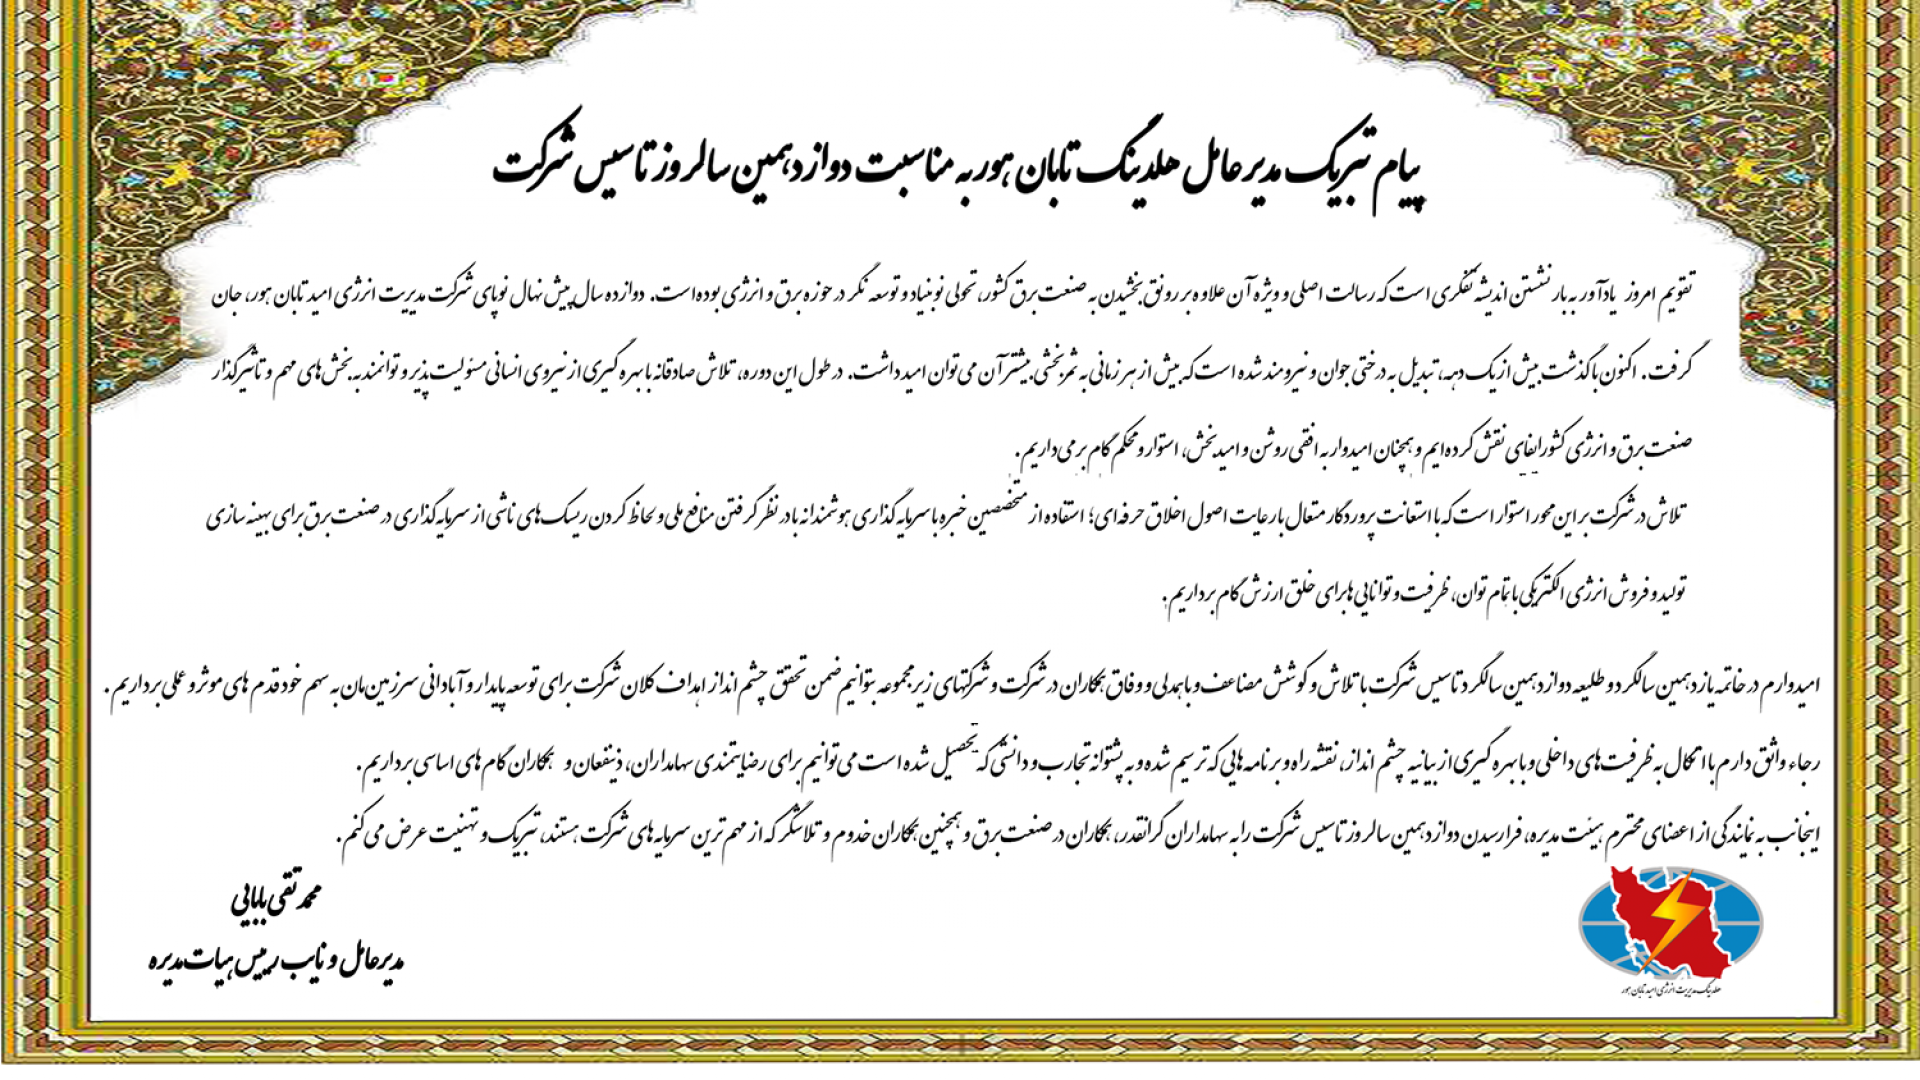 پیام تبریک مدیرعامل هلدینگ تابان هور به مناسبت دوازدهمین سالروز تاسیس شرکت
تقویم امروز یادآور به بار نشستن اندیشه تفکری است که رسالت اصلی و ویژه آن علاوه بر رونق بخشیدن به صنعت برق کشور، تحولی نو بنیاد و توسعه نگر در حوزه برق و انرژی بوده است. دوازده سال پیش نهال نوپای شرکت مدیریت انرژی امید تابان هور، جان
گرفت. اکنون با گذشت بیش از یک دهه، تبدیل به درختی جوان و نیرومند شده است که بیش از هر زمانی به ثمربخشی بیشتر آن می‌توان امید داشت. در طول این دوره، تلاش صادقانه با بهره گیری از نیروی انسانی مسئولیت پذیر و توانمند به بخش های مهم و تأثیرگذار
صنعت برق و انرژی کشور ایفای نقش کرده‌ایم و همچنان امیدوار به افقی روشن و امیدبخش، استوار و محکم گام بر می‌داریم.
تلاش در شرکت بر این محور استوار است که با استعانت پروردگار متعال با رعایت اصول اخلاق حرفه‌ای؛ استفاده از متخصصین خبره با سرمایه گذاری هوشمندانه با در نظر گرفتن منافع ملی و لحاظ کردن ریسک های ناشی از سرمایه گذاری در صنعت برق برای بهینه سازی
تولید و فروش انرژی الکتریکی با تمام توان، ظرفیت و توانایی ها برای خلق ارزش گام برداریم.
امیدوارم در خاتمه یازدهمین سالگرد و طلیعه دوازدهمین سالگرد تاسیس شرکت با تلاش و کوشش مضاعف و با همدلی و وفاق همکاران در شرکت و شرکتهای زیرمجموعه بتوانیم ضمن تحقق چشم انداز اهداف کلان شرکت برای توسعه پایدار و آبادانی سرزمین‌مان به سهم خود قدم های موثر و عملی برداریم.
رجاء واثق دارم با اتکال به ظرفیت های داخلی و با بهره گیری از بیانیه چشم انداز، نقشه راه و برنامه هایی که ترسیم شده و به پشتوانه تجارب و دانشی که تحصیل شده است می‌توانیم برای رضایتمندی سهامداران، ذینفعان و همکاران گام های اساسی برداریم.
اینجانب به نمایندگی از اعضای محترم هیئت مدیره، فرارسیدن دوازدهمین سالروز تاسیس شرکت را به سهامداران گرانقدر، همکاران در صنعت برق و همچنین همکاران خدوم و تلاشگر که از مهم ترین سرمایه های شرکت هستند، تبریک و تهنیت عرض می کنم.
محمدتقی بابایی
مدیرعامل و نایب رییس هیات مدیره
هلدینگ مدیریت انرژی امید تابان هور